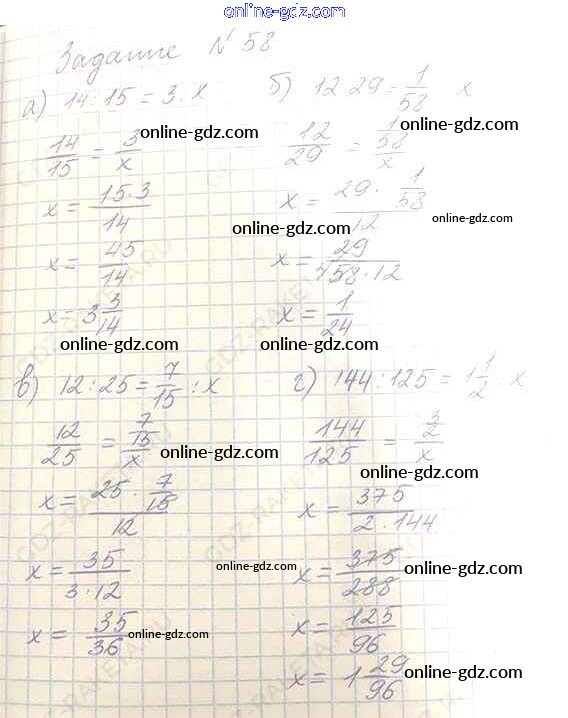 online-gdz.com
Задание N 58
а) 14:15 = 3:x
14/15 = 3/x
online-gdz.com
x = 15·3/14
x = 45/14
x = 3 3/14
online-gdz.com
б) 12 29 = 1/58 x
12/29 = 1/58/x
online-gdz.com
x = 29 · 1/58 / 12
online-gdz.com
online-gdz.com
x = 29/58·12
x = 1/24
online-gdz.com
в) 12:25 = 7/15 : x
12/25 = 7/15/x
online-gdz.com
x = 25 · 7/15 / 12
x = 35/3·12
online-gdz.com
x = 35/36
online-gdz.com
г) 144:125 = 1 1/2 · x
144/125 = 3/2/x
online-gdz.com
x = 375/2·144
x = 375/288
online-gdz.com
x = 125/96
x = 1 29/96
online-gdz.com
GDZ-RAKETA.RU